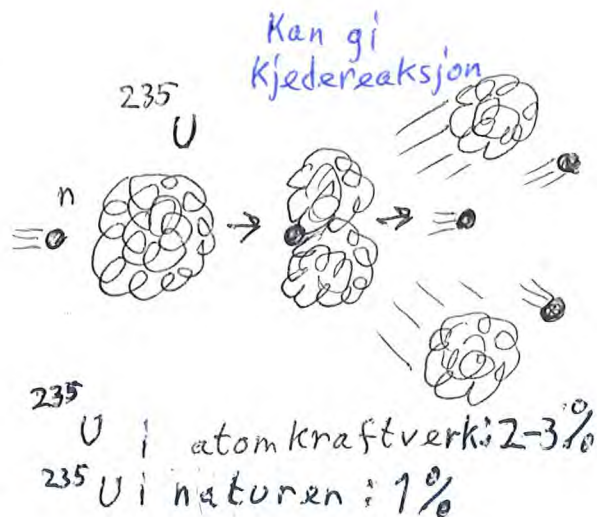 Kan gi
Kjedereaksjon
235
U
n
235
U i atomkraftverk: 2-3%
235 U i naturen: 1%